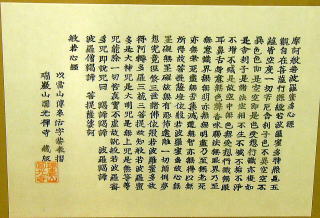 摩訶般若波羅蜜多心經
觀自在菩薩行深般若波羅蜜多時照見五
蘊皆空度一切苦厄舍利子色不異空空不
異色色即是空空即是色受想行識亦復如
是舍利子是諸法空相不生不滅不垢不淨
不增不減是故空中無色無受想行識無眼
耳鼻舌身意無色聲香味觸法無眼界乃至
無意識界無無明亦無無明盡乃至無老死
亦無老死盡無苦集滅道無智亦無得以無
所得故菩提薩埵依般若波羅蜜多故心無
罣礙無罣礙故無有恐怖遠離一切顛倒夢
想究竟涅槃三世諸佛依般若波羅蜜多故
得阿耨多羅三藐三菩提故知般若波羅蜜
多是大神呪是大明呪是無上呪是無等等
呪能除一切苦真實不虛故說般若波羅蜜
多呪即說呪曰 揭諦揭諦 波羅揭諦
波羅僧揭諦 菩提薩婆訶
般若心經
以當山傳來活字
瑞巖山圓光禪寺 藏版